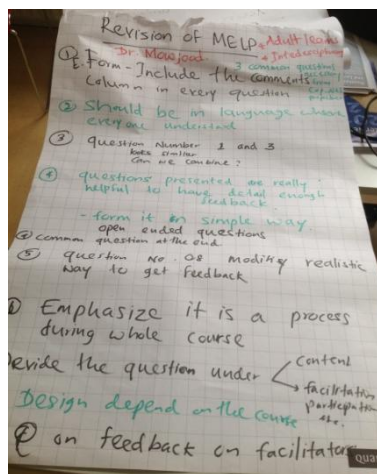 Revision of MELP
* Adult learn
Dr. Mawjood
* Interdisciplinary
3 common questions
① E. Form - Include the comments
column in every question
② Should be in language whare
everyone understand
③ question Number 1 and 3
looks similar
can we combine?
④ questions presented are really
helpful to have detail enough
feedback.
- form it in simple way.
open ended questions
④ common question at the end.
⑤ question No. 08 modify realistic
way to get feedback
Emphasize it is a process
during whole course
Devide the question under
content
facilitation
participation
Design depend on the course
on feedback on facilitators